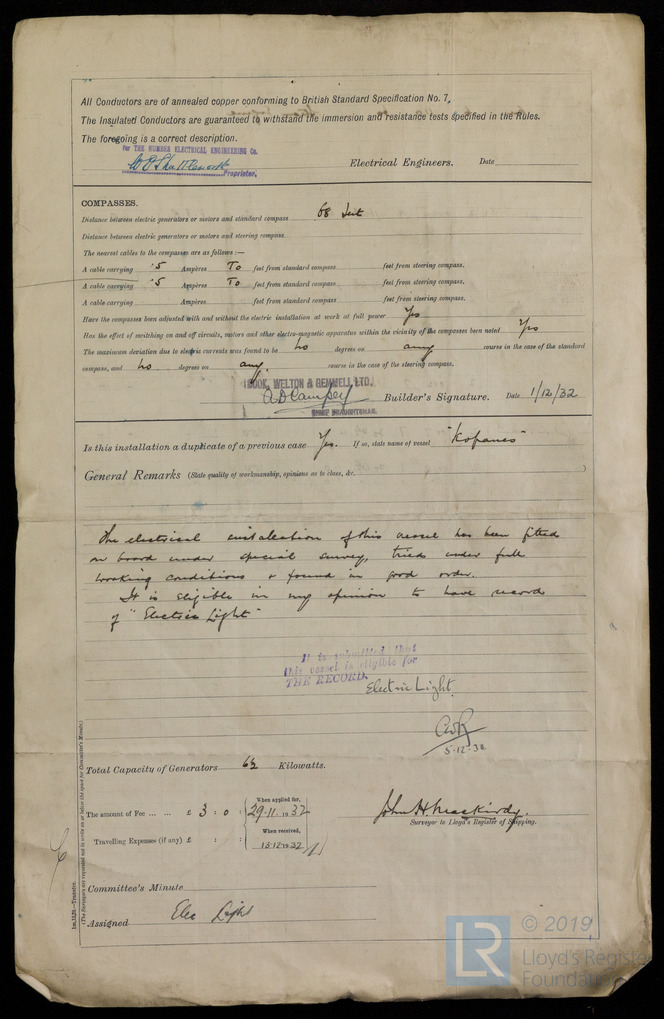 All Conductors are of annealed copper conforming to British Standard Specification No. 7,
The Insulated Conductors are guaranteed to withstand the immersion and resistance tests specified in the Rules.
The foregoing is a correct description.
For THE HUMBER ELECTRICAL ENGINEERING Co.
Proprietor. Electrical Engineers. Date
COMPASSES.
Distance between electric generators or motors and standard compass 68 feet
Distance between electric generators or motors and steering compass
The nearest cables to the compasses are as follows:—
A cable carrying ·5 Ampères To feet from standard compass feet from steering compass.
A cable carrying ·5 Ampères To feet from standard compass feet from steering compass.
A cable carrying Ampères feet from standard compass feet from steering compass.
Have the compasses been adjusted with and without the electric installation at work at full power Yes
Has the effect of switching on and off circuits, motors and other electro-magnetic apparatus within the vicinity of the compasses been noted Yes
The maximum deviation due to electric currents was found to be no degrees on any course in the case of the standard
compass, and no degrees on any course in the case of the steering compass.
COOK, WELTON & GEMMELL LTD.
Builder's Signature. Date 1/12/32
CHIEF DRAUGHTSMAN.
Is this installation a duplicate of a previous case Yes. If so, state name of vessel "Kopanes"
General Remarks (State quality of workmanship, opinions as to class, &c. )
The electrical installation of this vessel has been fitted
on board under special survey, tried under full
working conditions & found in good order.
It is eligible in my opinion to have record
of "Electric Light"
It is submitted that
this vessel is eligible for
THE RECORD.
Electric Light.
5-12-32
Total Capacity of Generators 6½ Kilowatts.
The amount of Fee ... ... £ 3 : 0 : When applied for, 29.11.1932
Travelling Expenses (if any) £ : : When received, 13.12.1932
John H. Mackirdy.
Surveyor to Lloyd's Register of Shipping.
Committee's Minute
Assigned Elec Light
1m.11.26.—Transfer.
(The Surveyors are requested not to write on or below the space for Committee's Minute.)
LR © 2019
Lloyd's Register
Foundation